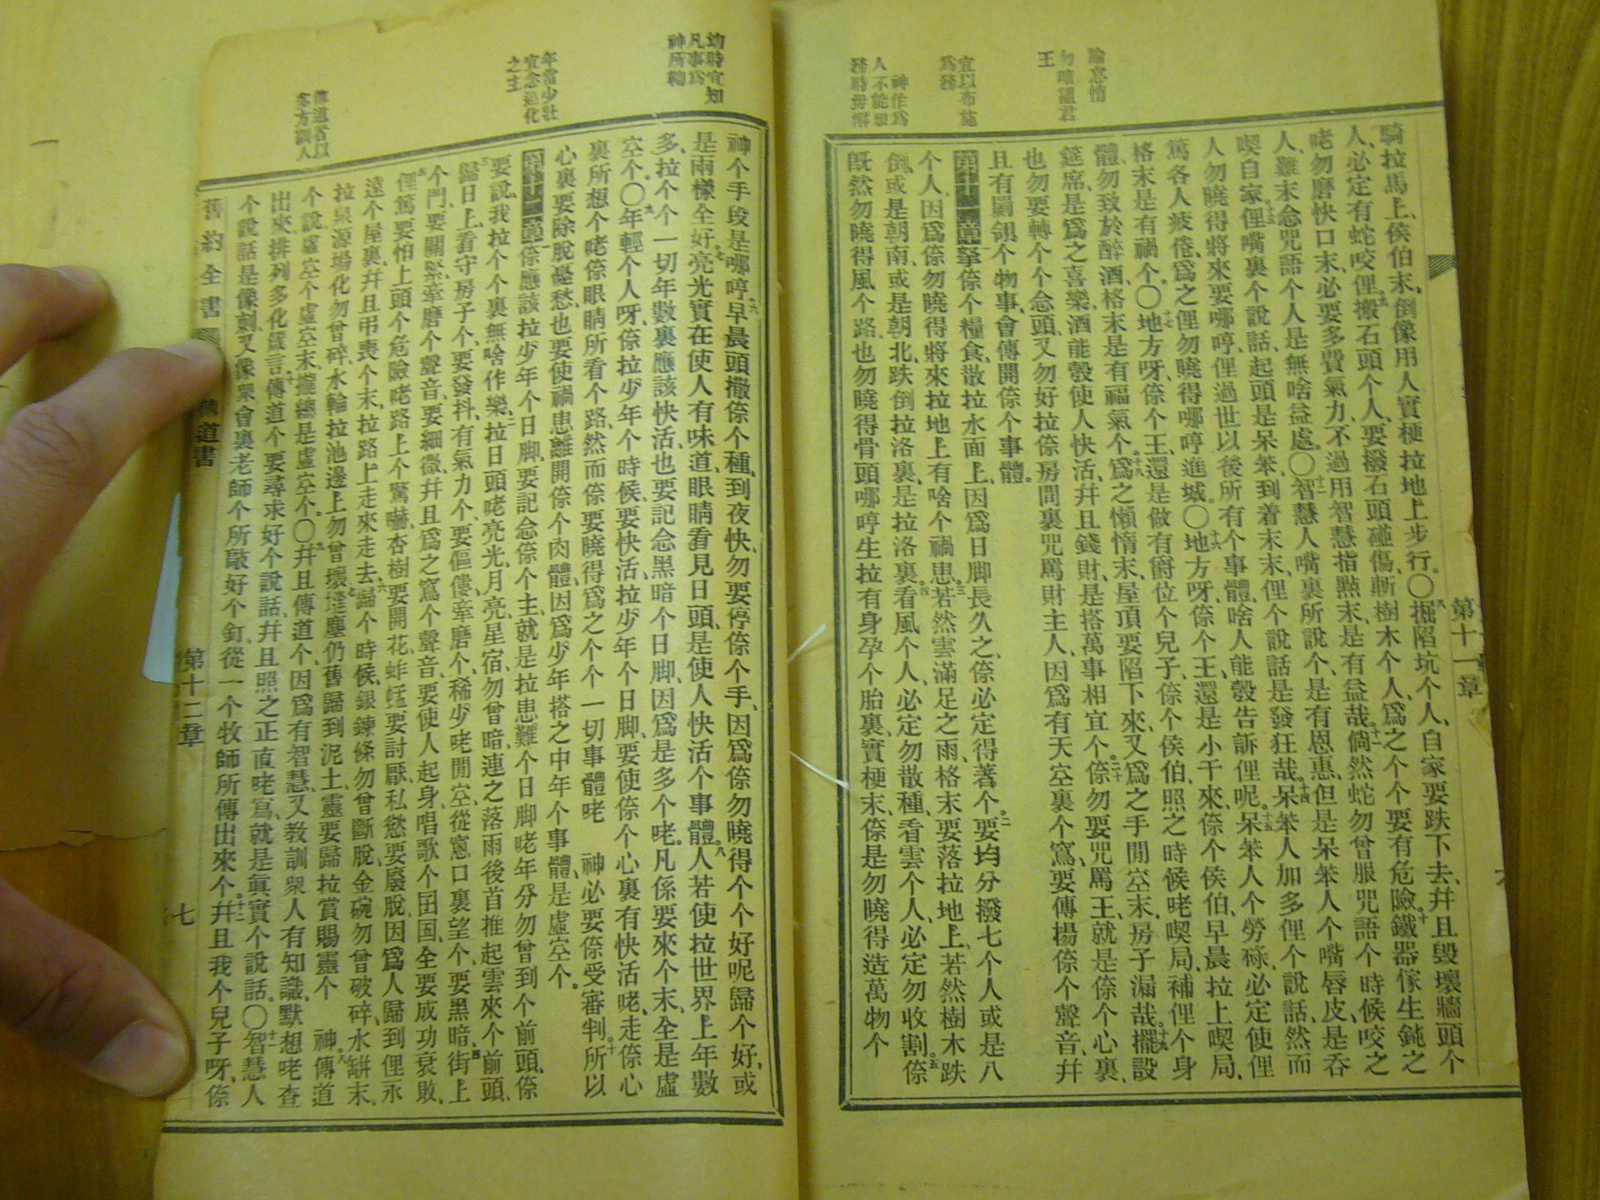 諭怠惰
勿暗詛君
王
宜以布施
爲務
神作爲
人不能知
務時毋懈
騎拉馬上、侯伯末、倒像用人實梗拉地上步行。〇掘陷坑个人、自家要跌下去、幷且毀壞牆頭个
人、必定有蛇咬俚、搬石頭个人、要撥石頭碰傷、斬樹木个人、爲之个个要有危險、鐵器傢生鈍之
咾勿磨快口末、必要多費氣力、不過用智慧指㸃末、是有益哉、倘然蛇勿曾服咒語个時候咬之
人、難末念咒語个人、是無啥益處。〇智慧人嘴裏所說个、是有恩惠、但是呆笨人个嘴唇皮、是呑
喫自家、俚嘴裏个說話、起頭是呆笨、到着末末、俚个說話是發狂哉、呆笨人加多俚个說話、然而
人勿曉得將來要哪哼、俚過世以後、所有个事體、啥人能彀告訴俚呢。呆笨人个勞碌、必定使俚
篤各人疲倦、爲之俚勿曉得哪哼進城。〇地方呀、倷个王、還是小干來、倷个侯伯、早晨拉上喫局、
格末是有禍个。〇地方呀、倷个王、還是做有爵位个兒子、倷个侯伯、照之時候咾喫局、補俚个身
體、勿致於醉酒、格末是有福氣个、爲之懶惰末、屋頂要陷下來、又爲之手閒空末、房子漏哉、擺設
筵席、是爲之喜樂、酒能彀使人快活、幷且錢財、是搭萬事相宜个、倷勿要咒罵王、就是倷个心裏、
也勿要轉个个念頭、又勿好拉倷房間裏咒罵財主人、因爲有天空裏个鳥、要傳揚倷个聲音、幷
且有翼翎个物事、會傳開倷个事體。
第十一章拏倷个糧食、散拉水面上、因爲日脚長久之、倷必定得著个、要均分撥七个人或是八
个人、因爲倷勿曉得將來拉地上有啥个禍患、若然雲滿足之雨、格末要落拉地上、若然樹木跌
倒、或是朝南、或是朝北、跌倒拉洛裏、是拉洛裏、看風个人、必定勿散種、看雲个人、必定勿收割、倷
旣然勿曉得風个路、也勿曉得骨頭哪哼生拉有身孕个胎裏、實梗末、倷是勿曉得造萬物个
第十一章
幼時宜知
凡事爲
神所鞫
年當少壯
宜念造化
之主
傳道者以
多方訓人
神个手段是哪哼、早晨頭撒倷个種、到夜快、勿要停倷个手、因爲倷勿曉得个个好呢歸个好、或
是兩樣全好、亮光實在使人有味道、眼睛看見日頭、是使人快活个事體、人若使拉世界上年數
多、拉个个一切年數裏、應該快活、也要記念黑暗个日脚、因爲是多个咾。凡係要來个末、全是虛
空个。〇年輕个人呀、倷拉少年个時候、要快活、拉少年个日脚、要使倷个心裏有快活咾、走倷心
裏所想个咾、倷眼睛所看个路、然而倷要曉得爲之个个一切事體咾 神必要倷受審判。所以
心裏要除脫憂愁、也要使禍患離開倷个肉體、因爲少年搭之中年个事體、是虛空个。
第十二章倷應該拉少年个日脚、要記念倷个主、就是拉患難个日脚咾年分勿曾到个前頭、倷
要說、我拉个个裏無啥作樂、拉日頭咾亮光、月亮、星宿、勿曾暗、連之落雨後首推起雲來个前頭、
歸日上、看守房子个、要發抖、有氣力个、要傴僂、牽磨个、稀少咾閒空、從窻口裏望个、要黑暗、街上
个門、要關緊、牽磨个聲音、要細微、幷且爲之鳥个聲音、要使人起身、唱歌个囝囡、全要成功衰敗、
俚篤要怕上頭个危險咾路上个驚嚇、杏樹要開花、蚱蜢要討厭、私慾要廢脫、因爲人歸到俚永
遠个屋裏、幷且弔喪个末、拉路上走來走去、歸个時候、銀鍊條勿曾斷脫、金碗勿曾破碎、水缾末、
拉泉源場化勿曾碎、水輪拉池邊上勿曾壞、塵仍舊歸到泥土、靈要歸拉賞賜靈个 神、傳道
个說、虛空个虛空末、攏總是虛空个。〇幷且傳道个、因爲有智慧、又敎訓衆人有知識、默想咾查
出來、排列多化箴言、傳道个要尋求好个說話、幷且照之正直咾寫、就是眞實个說話。〇智慧人
个說話、是像刺、又像衆會裏老師个所敲好个釘、從一个牧師所傳出來个、幷且我个兒子呀、倷
舊約全書
傳道書
第十二章
七